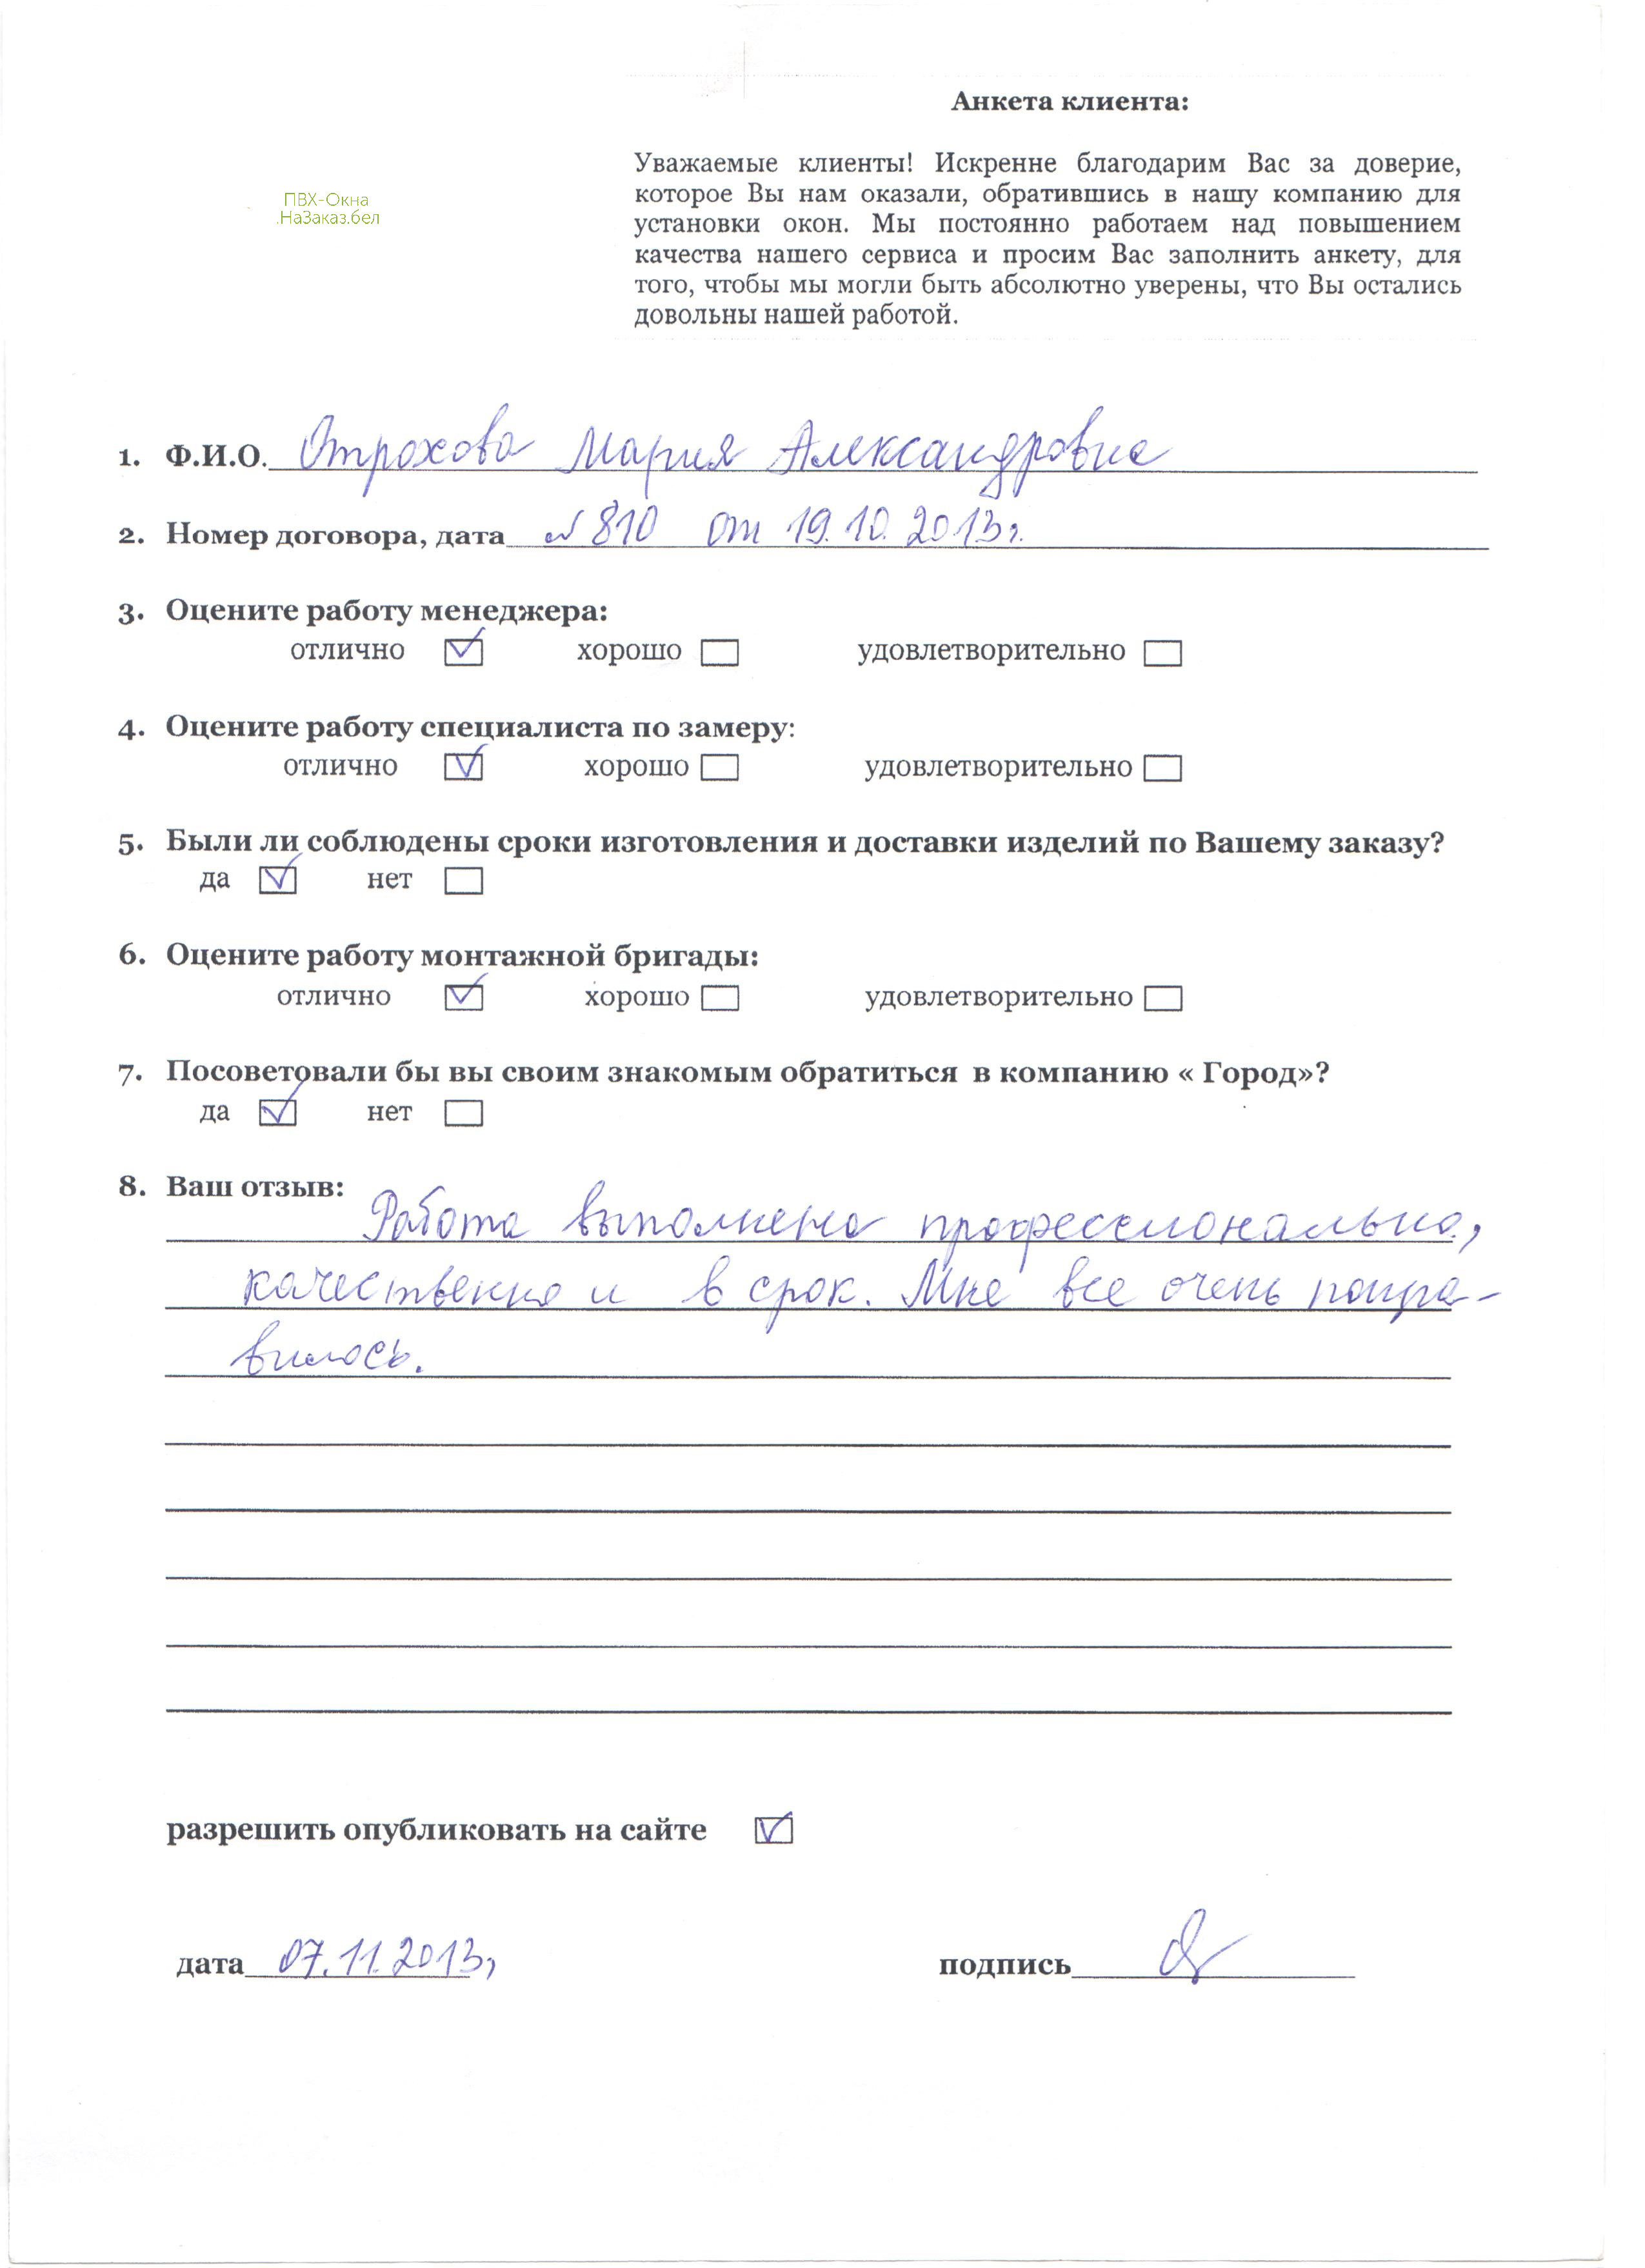 Анкета клиента:
Уважаемые клиенты! Искренне благодарим Вас за доверие,
которое Вы нам оказали, обратившись в нашу компанию для
установки окон. Мы постоянно работаем над повышением
качества нашего сервиса и просим Вас заполнить анкету, для
того, чтобы мы могли быть абсолютно уверены, что Вы остались
довольны нашей работой.
ПВХ-Окна
.НаЗаказ.бел
1. Ф.И.О. Отрохова Мария Александровна
2. Номер договора, дата №810 от 19.10.2013г.
3. Оцените работу менеджера:
отлично хорошо удовлетворительно
4. Оцените работу специалиста по замеру:
отлично хорошо удовлетворительно
5. Были ли соблюдены сроки изготовления и доставки изделий по Вашему заказу?
да нет
6. Оцените работу монтажной бригады:
отлично хорошо удовлетворительно
7. Посоветовали бы вы своим знакомым обратиться в компанию « Город»?
да нет
8. Ваш отзыв:
Работа выполнена профессионально,
качественно и в срок. Мне все очень понра-
вилось.
разрешить опубликовать на сайте
дата 07.11.2013г подпись